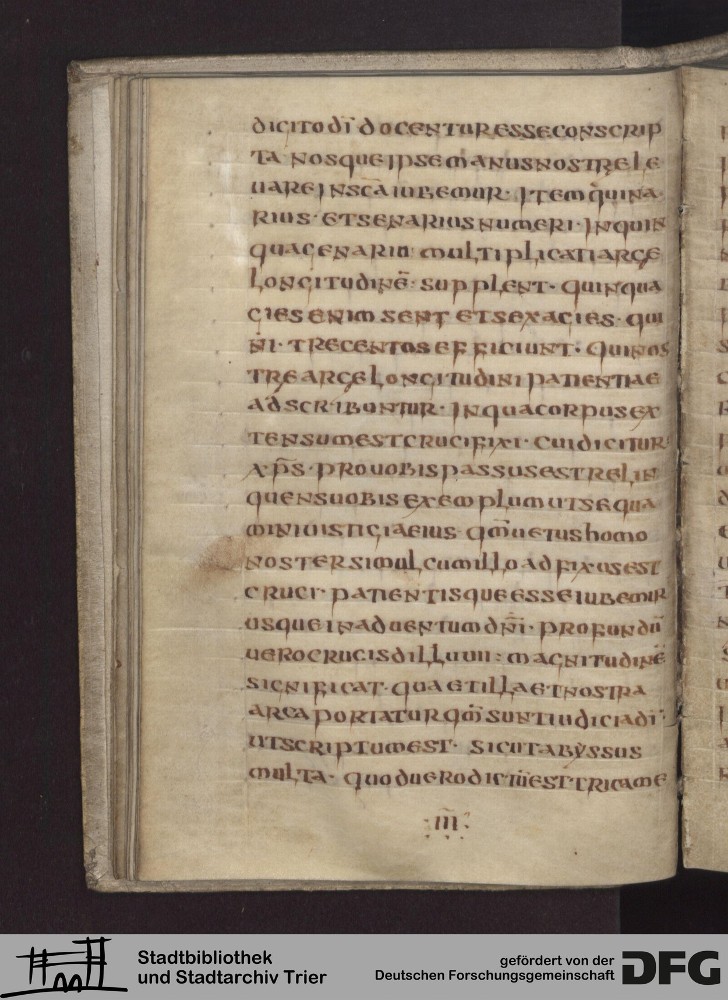 dicitodī docenturesseconscrip
ta nosqueipsemanusnostrele
uareinscāiubemur· itemq̄uina·
rius· etsenariusnumeri· inquin
quagenariū multiplicatiarcę
longitudinē· supplent· quinqua
gięsenim senț etsexagies· qui
ni· trecentosefficiunt· quinos
tręarcęlongitudinipatientiae
adscribuntur· inquacorpusex
tensumestcrucifixi· cuidicitur
xp̄s· prouobispassusestrelin
quensuobisexemplumutsequa
miniuistigiaeius· qm̄uetushomo
nostersimulcumilloadfixusest
cruci· patientisqueesseiubemur
usqueinaduentumdn̄i· profundū
uerocrucisdiluuii: magnitudinē
significat· quaetillaetnostra
arcaportaturqm̄suntiudiciadī·
utscriptumest· sicutabyssus
multa· quoduerodictūest·tricame
·III·
Stadtbibliothek
und Stadtarchiv Trier
gefördert von der
Deutschen Forschungsgemeinschaft
DFG